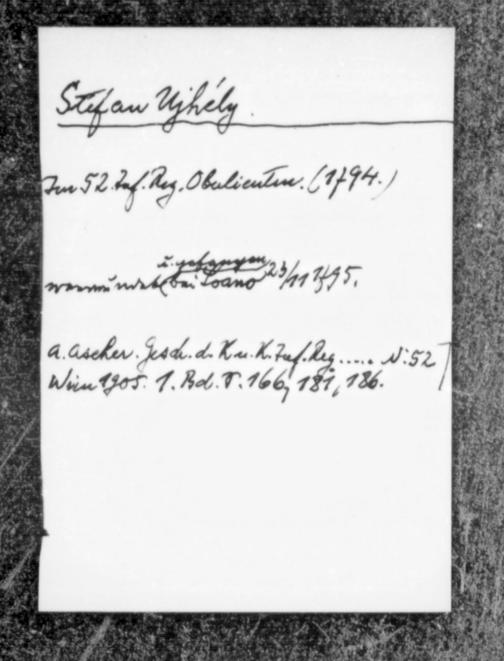 Stefan Ujhély.
Im 52. Inf. Reg. Oberlieutn. (1794.)
u. gefangen
verwundet bei Loano 23/11 1795.
A. Ascher. Gesch. d. K. u. K. Inf. Reg..... N: 52
Wien 1905. 1. Bd. S. 166, 181, 186.